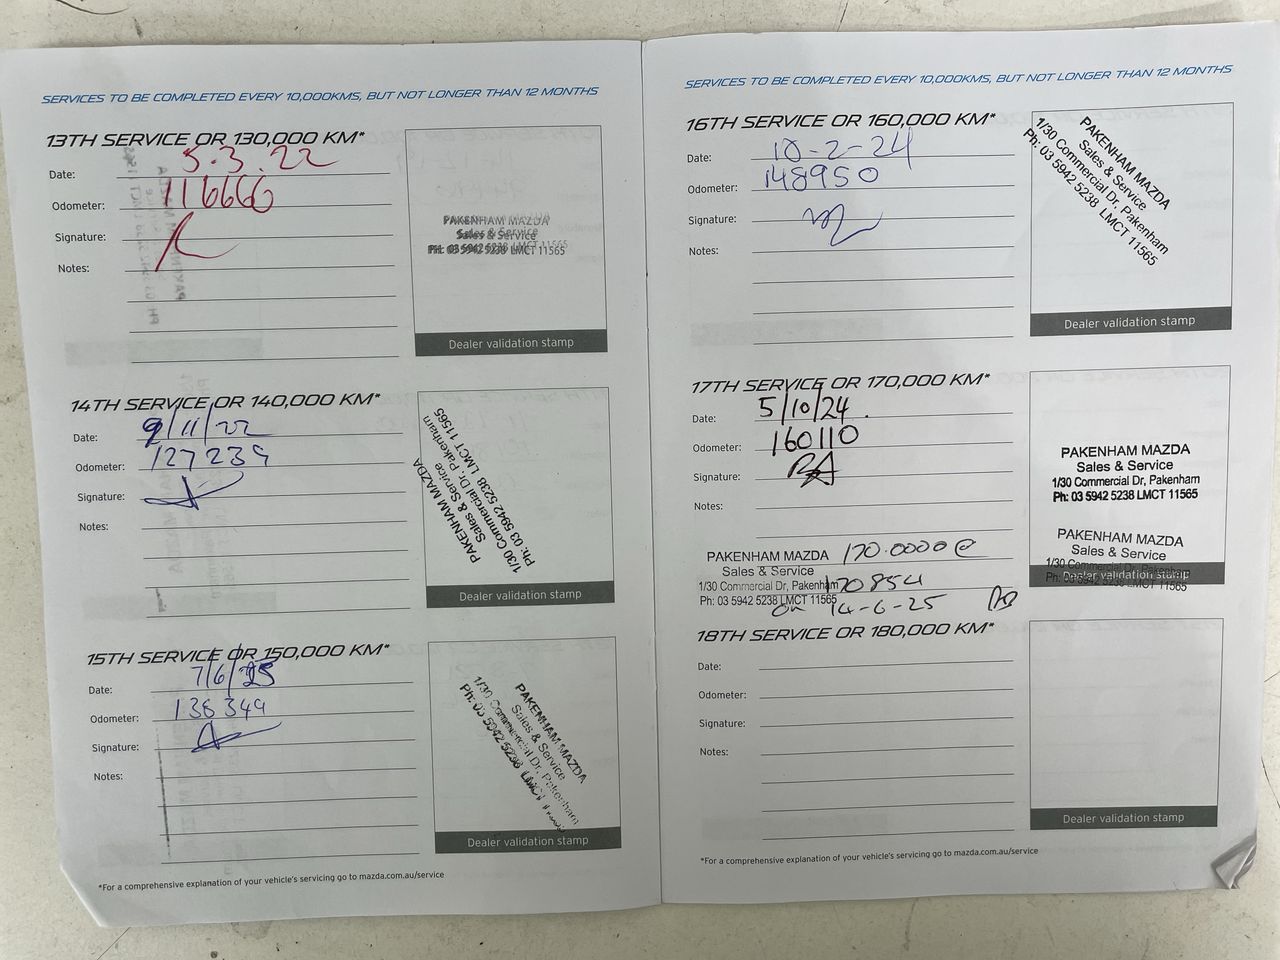 SERVICES TO BE COMPLETED EVERY 10,000KMS, BUT NOT LONGER THAN 12 MONTHS
13TH SERVICE OR 130,000 KM*
Date: 5.3.22
Odometer: 116666
Signature:
Notes:
PAKENHAM MAZDA
Sales & Service
PH: 03 5942 5238 LMCT 11565
Dealer validation stamp
14TH SERVICE OR 140,000 KM*
Date: 9/11/22
Odometer: 127239
Signature:
Notes:
PAKENHAM MAZDA
Sales & Service
1/30 Commercial Dr, Pakenham
Ph: 03 5942 5238 LMCT 11565
Dealer validation stamp
15TH SERVICE OR 150,000 KM*
Date: 7/6/
Odometer: 138349
Signature:
Notes:
PAKENHAM MAZDA
Sales & Service
1/30 Commercial Dr, Pakenham
Ph: 03 5942 5238 LMCT
Dealer validation stamp
*For a comprehensive explanation of your vehicle's servicing go to mazda.com.au/service
SERVICES TO BE COMPLETED EVERY 10,000KMS, BUT NOT LONGER THAN 12 MONTHS
16TH SERVICE OR 160,000 KM*
Date: 10-2-24
Odometer: 148950
Signature:
Notes:
PAKENHAM MAZDA
Sales & Service
1/30 Commercial Dr, Pakenham
Ph: 03 5942 5238 LMCT 11565
Dealer validation stamp
17TH SERVICE OR 170,000 KM*
Date: 5/10/24.
Odometer: 160110
Signature:
Notes:
PAKENHAM MAZDA 170.0000 @
Sales & Service
1/30 Commercial Dr, Pakenham 170854
Ph: 03 5942 5238 LMCT 11565
on 14-6-25
PAKENHAM MAZDA
Sales & Service
1/30 Commercial Dr, Pakenham
Ph: 03 5942 5238 LMCT 11565
PAKENHAM MAZDA
Sales & Service
1/30 Commercial Dr, Pakenham
Ph: 03 5942 5238 LMCT 11565
Dealer validation stamp
18TH SERVICE OR 180,000 KM*
Date:
Odometer:
Signature:
Notes:
Dealer validation stamp
*For a comprehensive explanation of your vehicle's servicing go to mazda.com.au/service